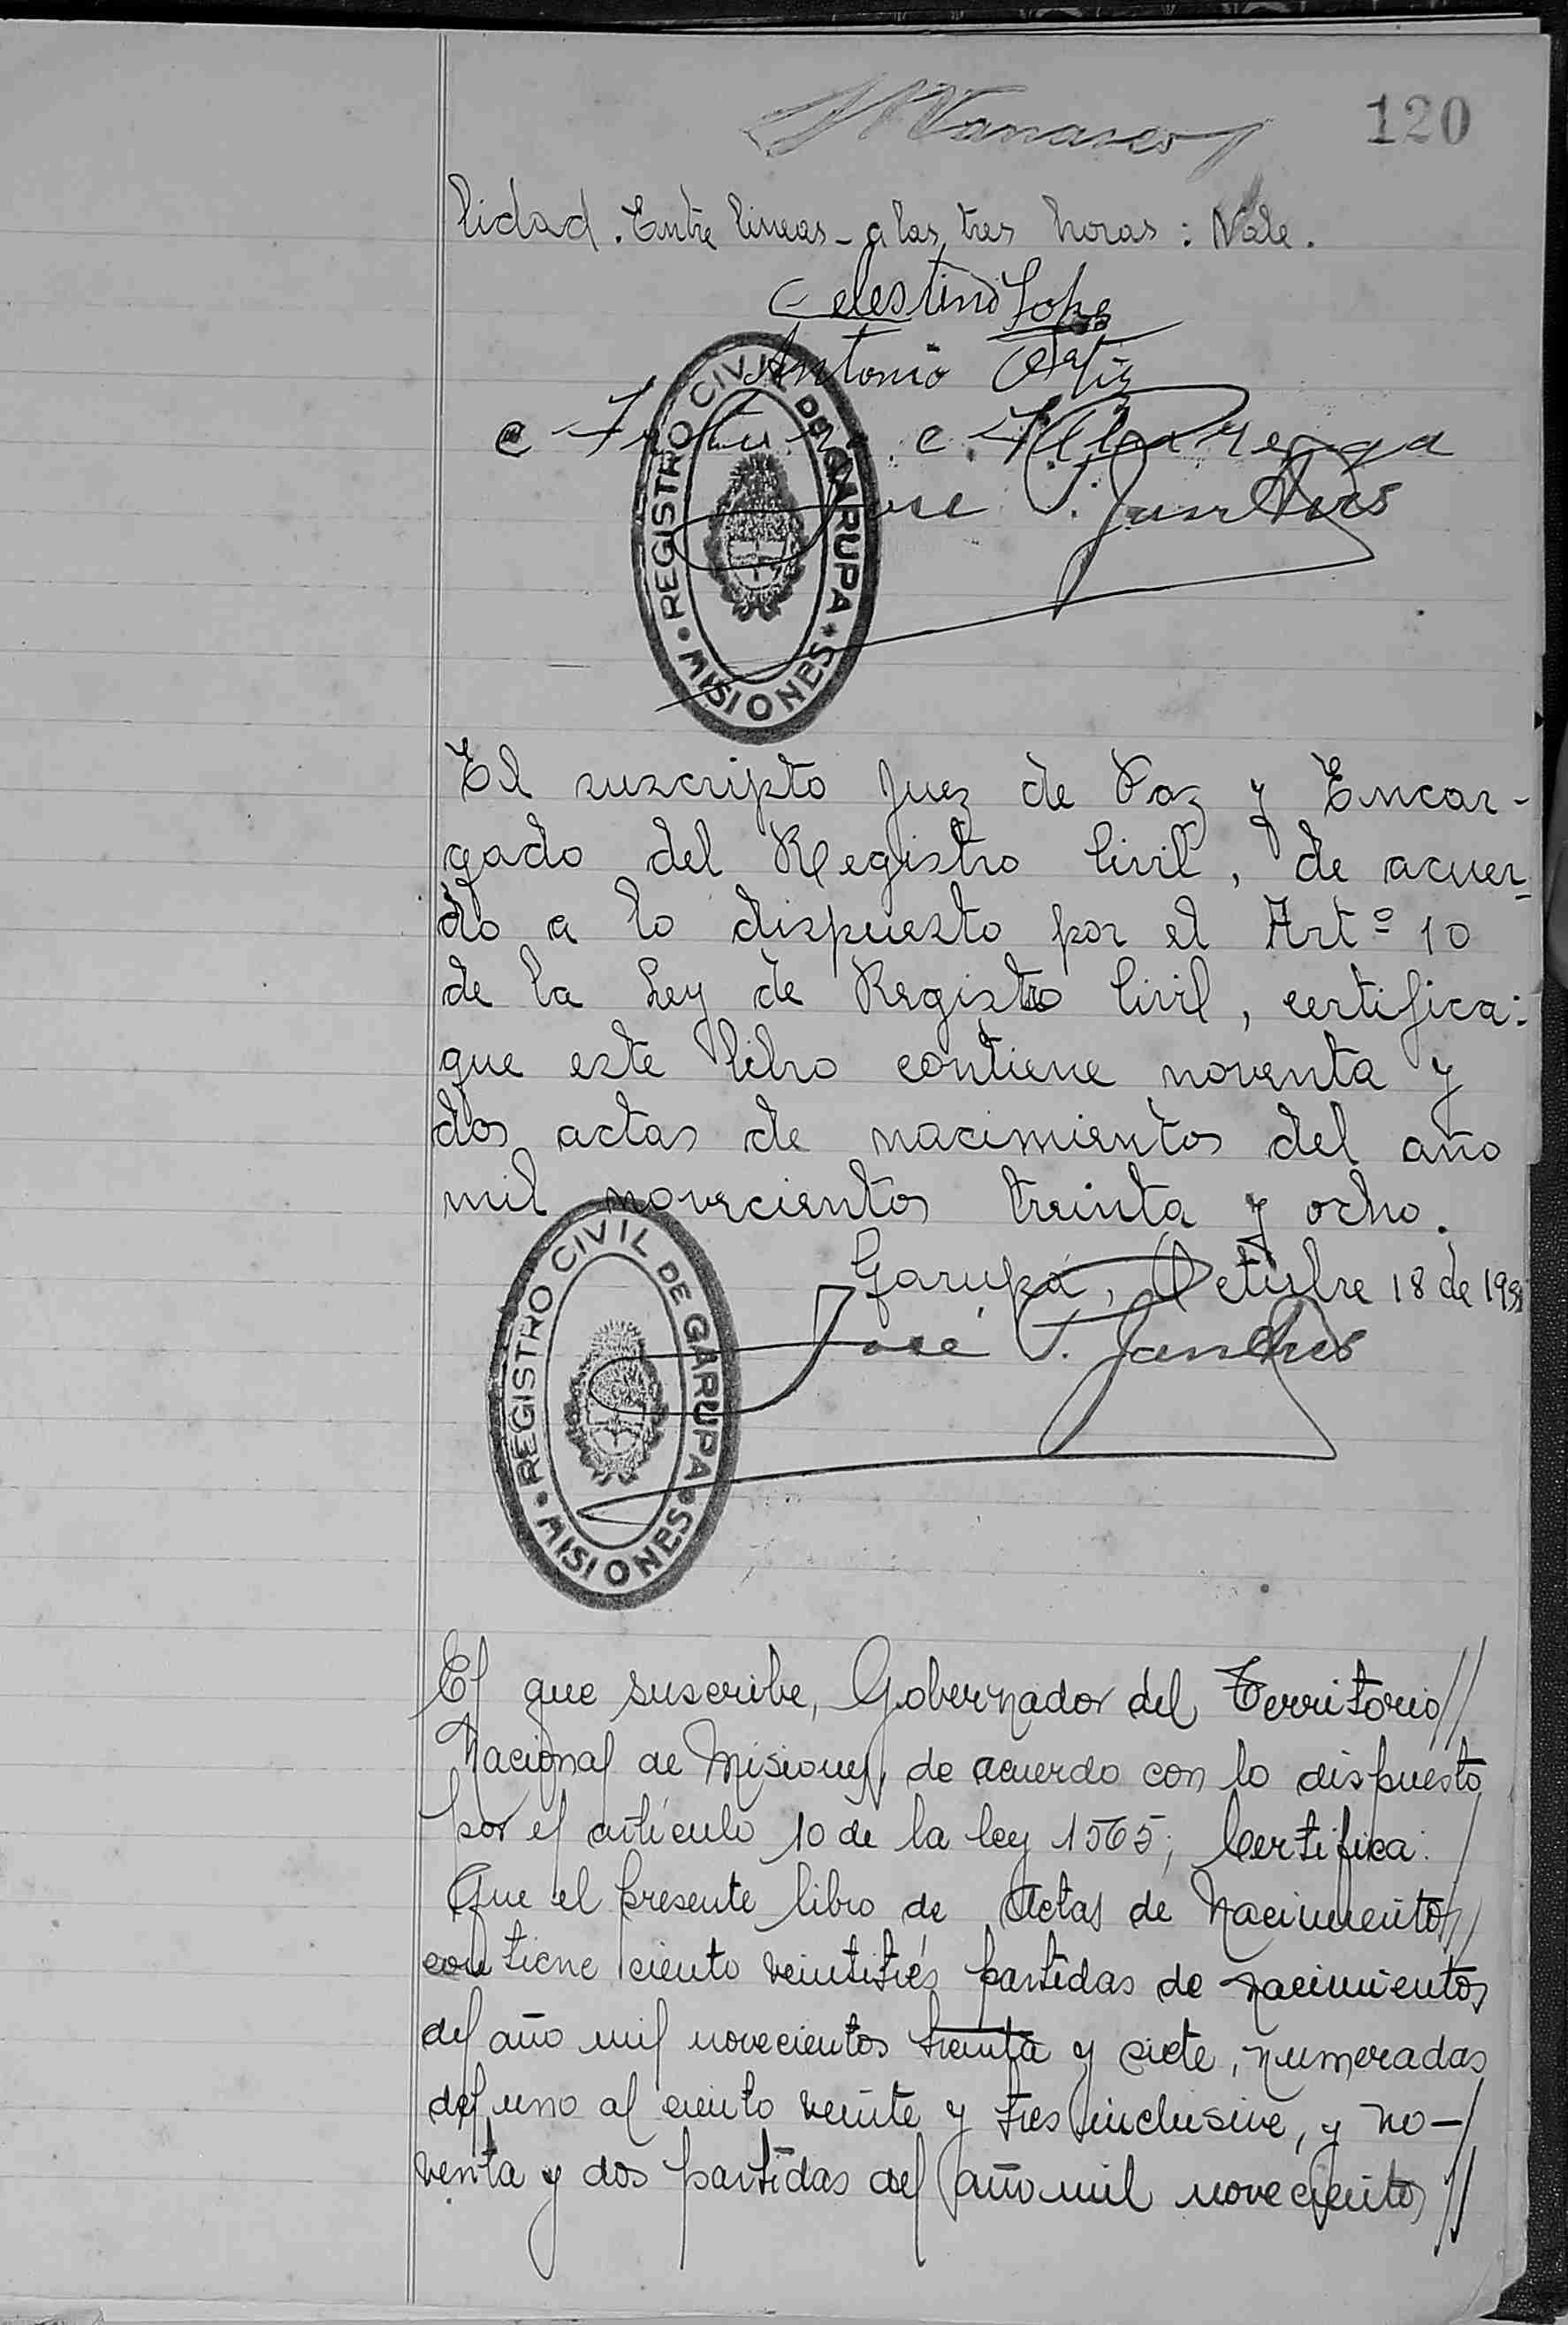 120
lidad. Entre lineas - a las tres horas: Vale.
Celestino Lopez
Antonio Ortiz
José
REGISTRO CIVIL DE GARUPA
MISIONES
El suscripto Juez de Paz y Encar-
gado del Registro Civil, de acuer-
do a lo dispuesto por el Artº 10
de la Ley de Registro Civil, certifica:
que este libro contiene noventa y
dos actas de nacimientos del año
mil novecientos treinta y ocho.
Garupá, Octubre 18 de
José
REGISTRO CIVIL DE GARUPA
MISIONES
El que suscribe, Gobernador del Territorio//
Nacional de Misiones, de acuerdo con lo dispuesto
por el artículo 10 de la ley 1565; Certifica:
Que el presente libro de Actas de Nacimientos//
contiene ciento veintitrés partidas de nacimientos
del año mil novecientos treinta y siete, numeradas
del uno al ciento veinte y tres inclusive, y no-
venta y dos partidas del año mil novecientos//